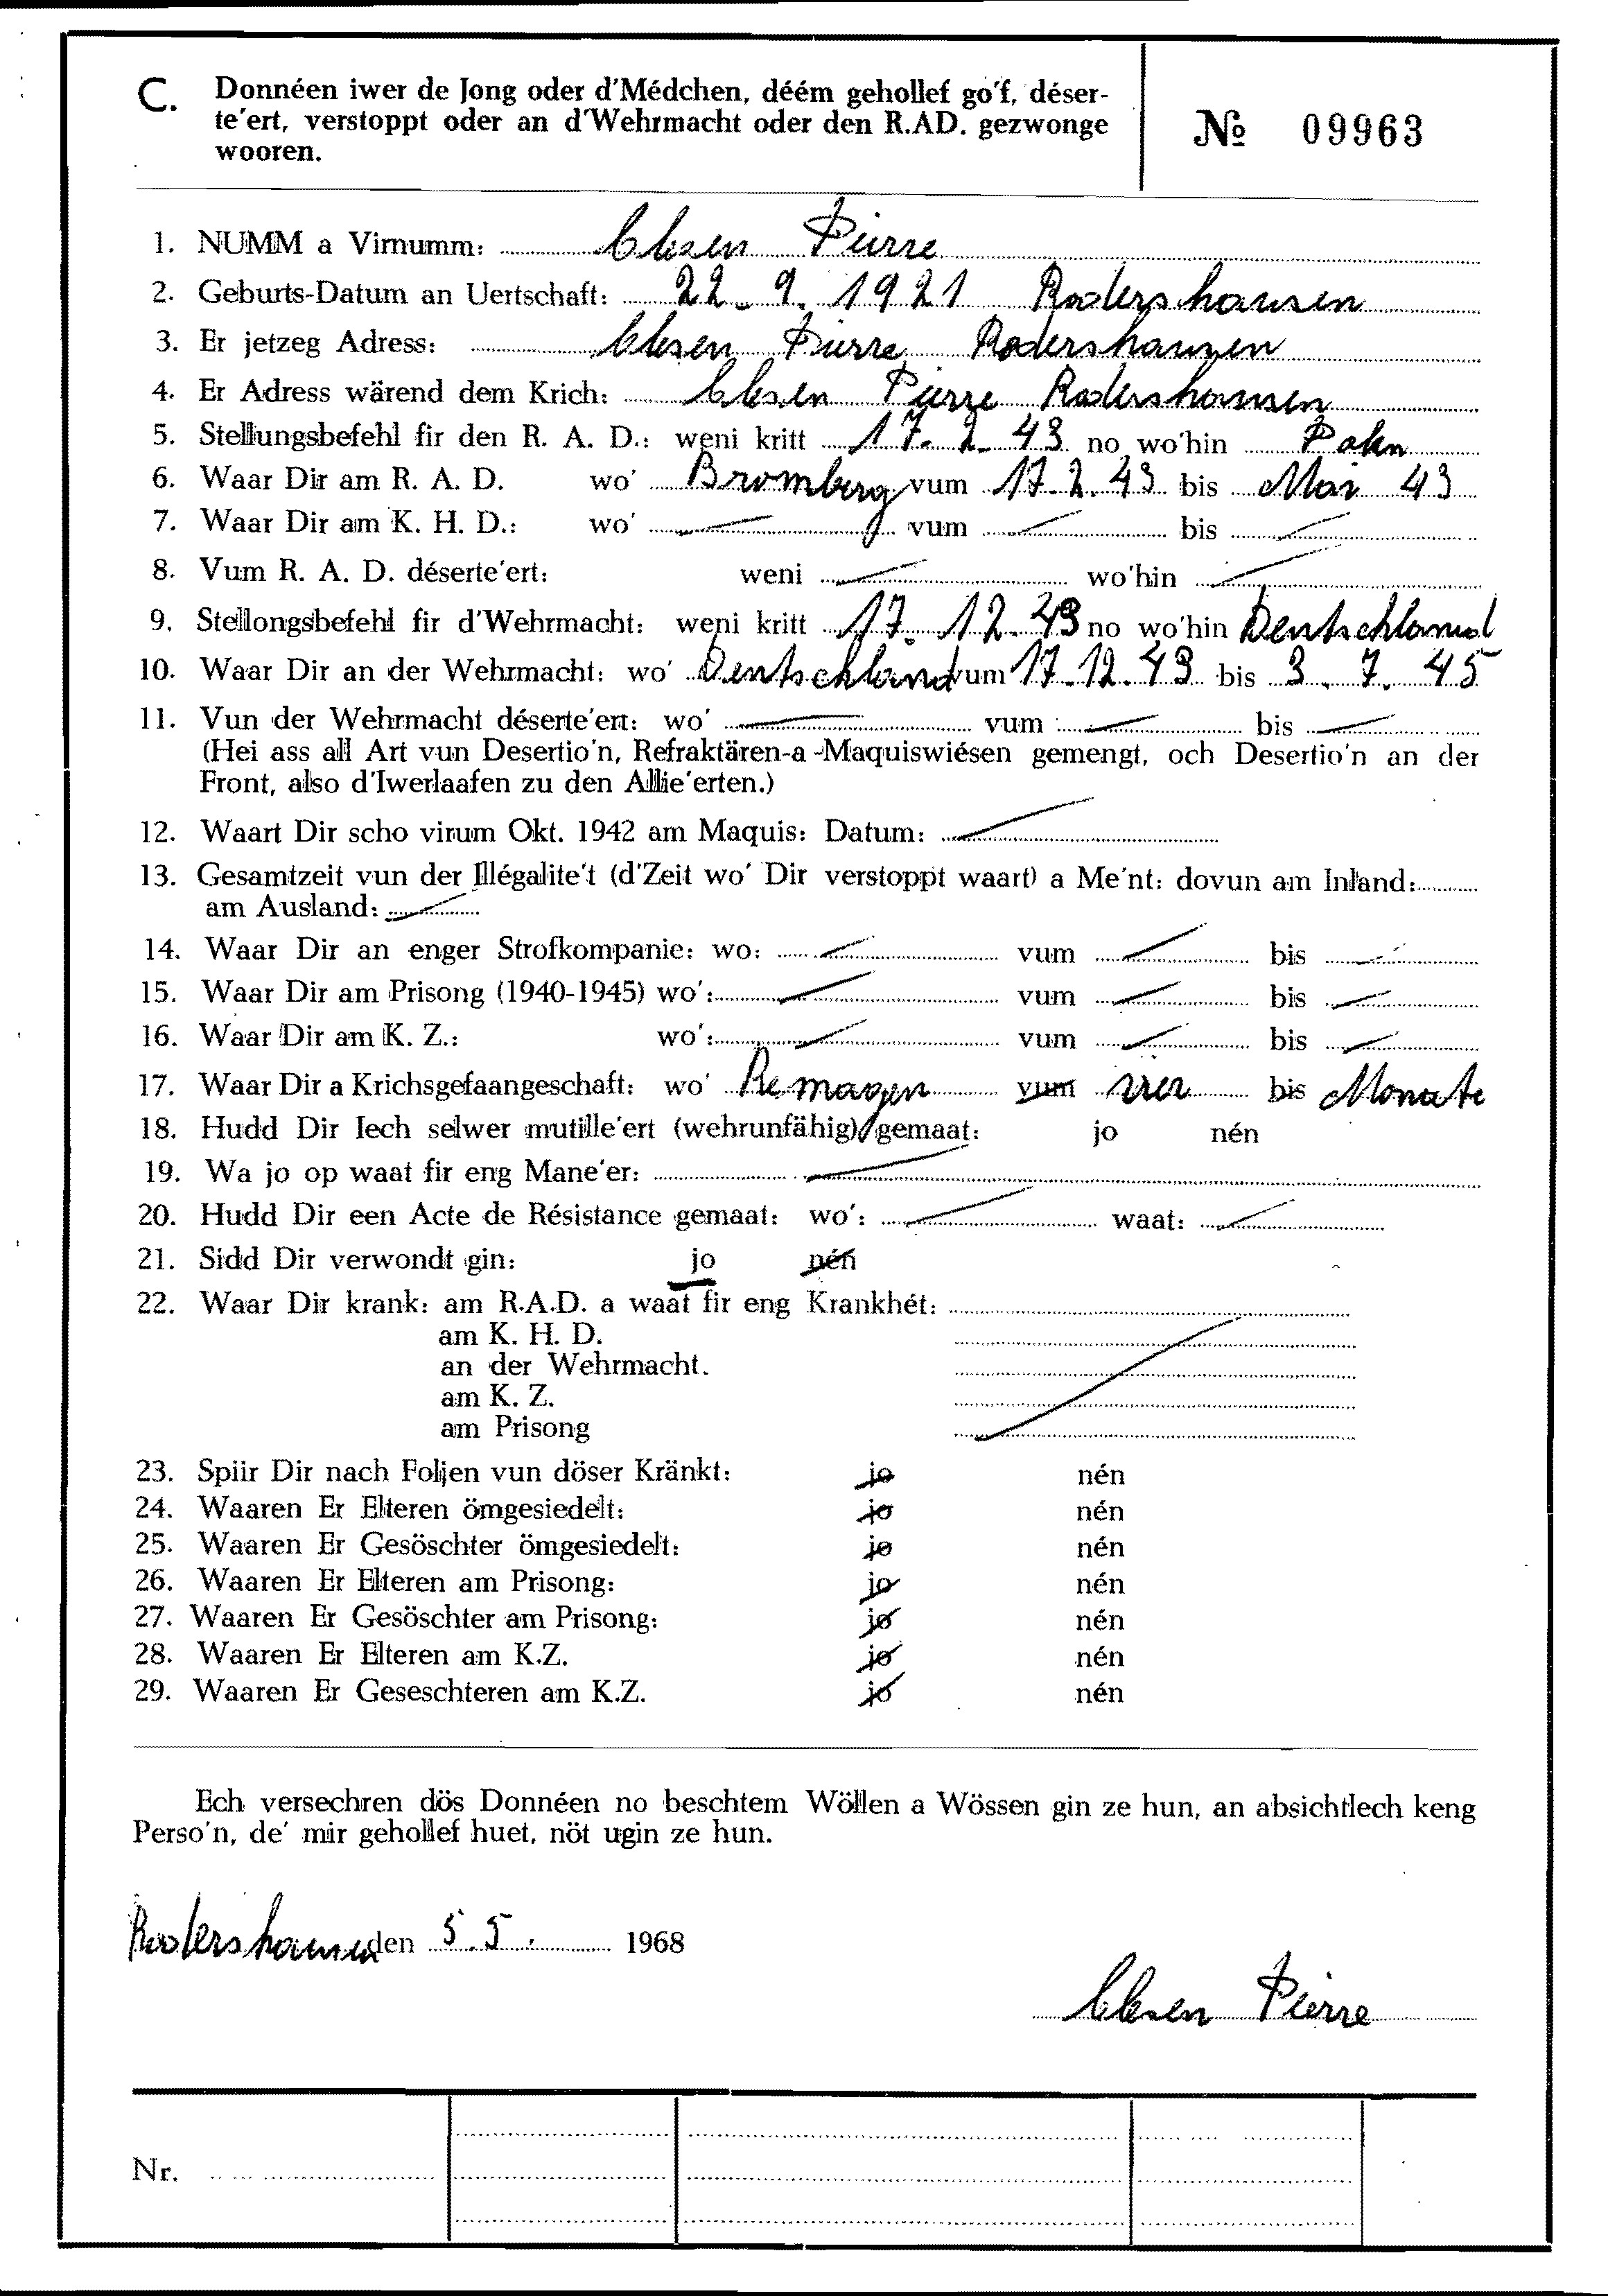 C. Donnéen iwer de Jong oder d'Médchen, déém gehollef go'f, déser-
te'ert, verstoppt oder an d'Wehrmacht oder den R.AD. gezwonge
wooren.
№ 09963
1. NUMM a Virnumm: Clesen Pierre
2. Geburts-Datum an Uertschaft: 22.9.1921 Rodershausen
3. Er jetzeg Adress: Clesen Pierre Rodershausen
4. Er Adress wärend dem Krich: Clesen Pierre Rodershausen
5. Stellungsbefehl fir den R. A. D.: weni kritt 17.2.43 no wo'hin Polen
6. Waar Dir am R. A. D. wo' Bromberg vum 17.2.43 bis Mai 43
7. Waar Dir am K. H. D.: wo' vum bis
8. Vum R. A. D. déserte'ert: weni wo'hin
9. Stellongsbefehl fir d'Wehrmacht: weni kritt 17.12.43 no wo'hin Deutschland
10. Waar Dir an der Wehrmacht: wo' Deutschland vum 17.12.43 bis 3.7.45
11. Vun der Wehrmacht déserte'ert: wo' vum bis
(Hei ass all Art vun Desertio'n, Refraktären-a-Maquiswiésen gemengt, och Desertio'n an der
Front, also d'Iwerlaafen zu den Allie'erten.)
12. Waart Dir scho virum Okt. 1942 am Maquis: Datum:
13. Gesamtzeit vun der Illégalite't (d'Zeit wo' Dir verstoppt waart) a Me'nt: dovun am Inland:
am Ausland:
14. Waar Dir an enger Strofkompanie: wo: vum bis
15. Waar Dir am Prisong (1940-1945) wo': vum bis
16. Waar Dir am K. Z.: wo': vum bis
17. Waar Dir a Krichsgefaangeschaft: wo' Remagen vum vier bis Monate
18. Hudd Dir Iech selwer mutille'ert (wehrunfähig) gemaat: jo nén
19. Wa jo op waat fir eng Mane'er:
20. Hudd Dir een Acte de Résistance gemaat: wo': waat:
21. Sidd Dir verwondt gin: jo nén
22. Waar Dir krank: am R.A.D. a waat fir eng Krankhét:
am K. H. D.
an der Wehrmacht.
am K. Z.
am Prisong
23. Spiir Dir nach Foljen vun döser Kränkt: jo nén
24. Waaren Er Elteren ömgesiedelt: jo nén
25. Waaren Er Gesöschter ömgesiedelt: jo nén
26. Waaren Er Elteren am Prisong: jo nén
27. Waaren Er Gesöschter am Prisong: jo nén
28. Waaren Er Elteren am K.Z. jo nén
29. Waaren Er Geseschteren am K.Z. jo nén
Ech versechren dös Donnéen no beschtem Wöllen a Wössen gin ze hun, an absichtlech keng
Perso'n, de' mir gehollef huet, nöt ugin ze hun.
Rodershausen den 5.5. 1968
Clesen Pierre
Nr.